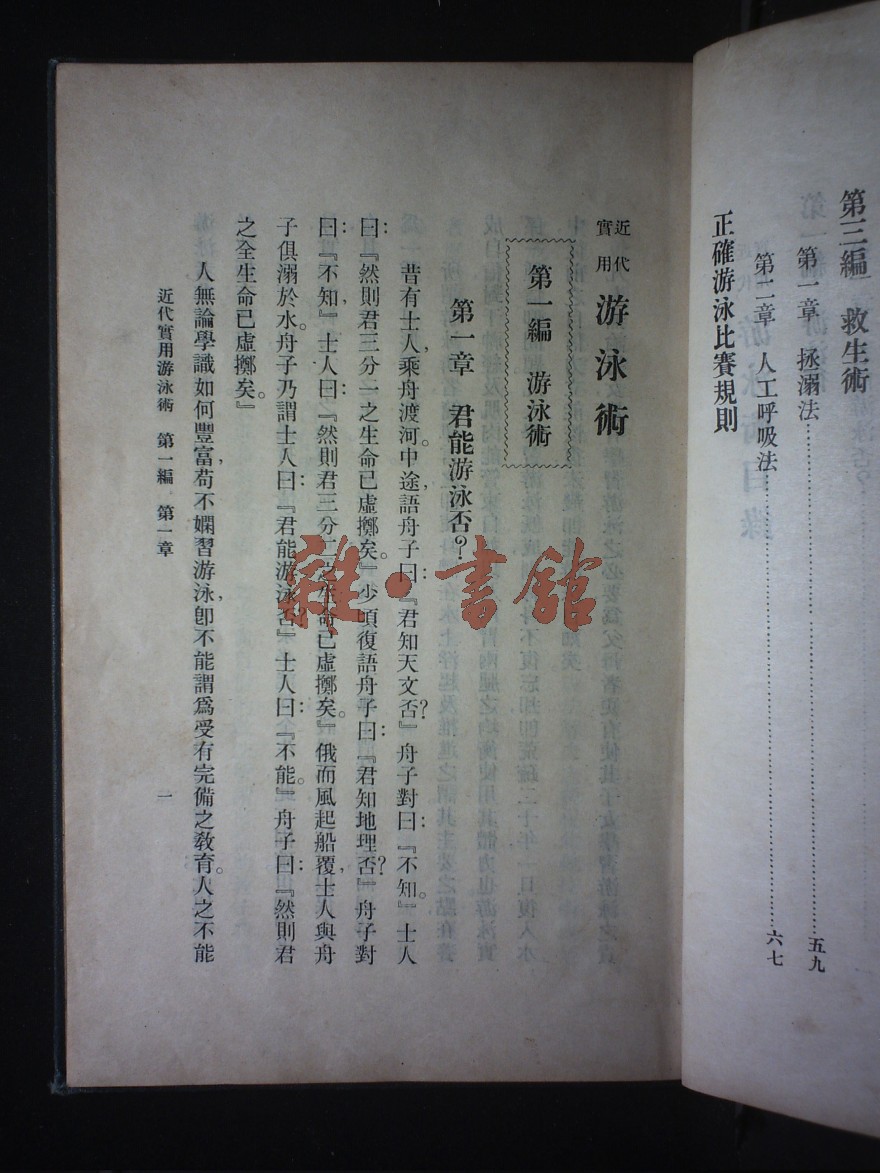 第三編　救生術
第一章　拯溺法……五九
第二章　人工呼吸法……六七
正確游泳比賽規則
近代實用　游泳術
第一編　游泳術
第一章　君能游泳否？
昔有士人，乘舟渡河。中途，語舟子曰：『君知天文否？』舟子對曰：『不知。』士人
曰：『然則君三分一之生命已虛擲矣。』少頃復語舟子曰：『君知地理否？』舟子對
曰：『不知，』士人曰：『然則君三分二之生命已虛擲矣。』俄而風起船覆，士人與舟
子俱溺於水。舟子乃謂士人曰：『君能游泳否？』士人曰：『不能。』舟子曰：『然則君
之全生命已虛擲矣。』
人無論學識如何豐富，苟不嫻習游泳，卽不能謂爲受有完備之敎育。人之不能
近代實用游泳術　第一編　第一章
一
雜·書館